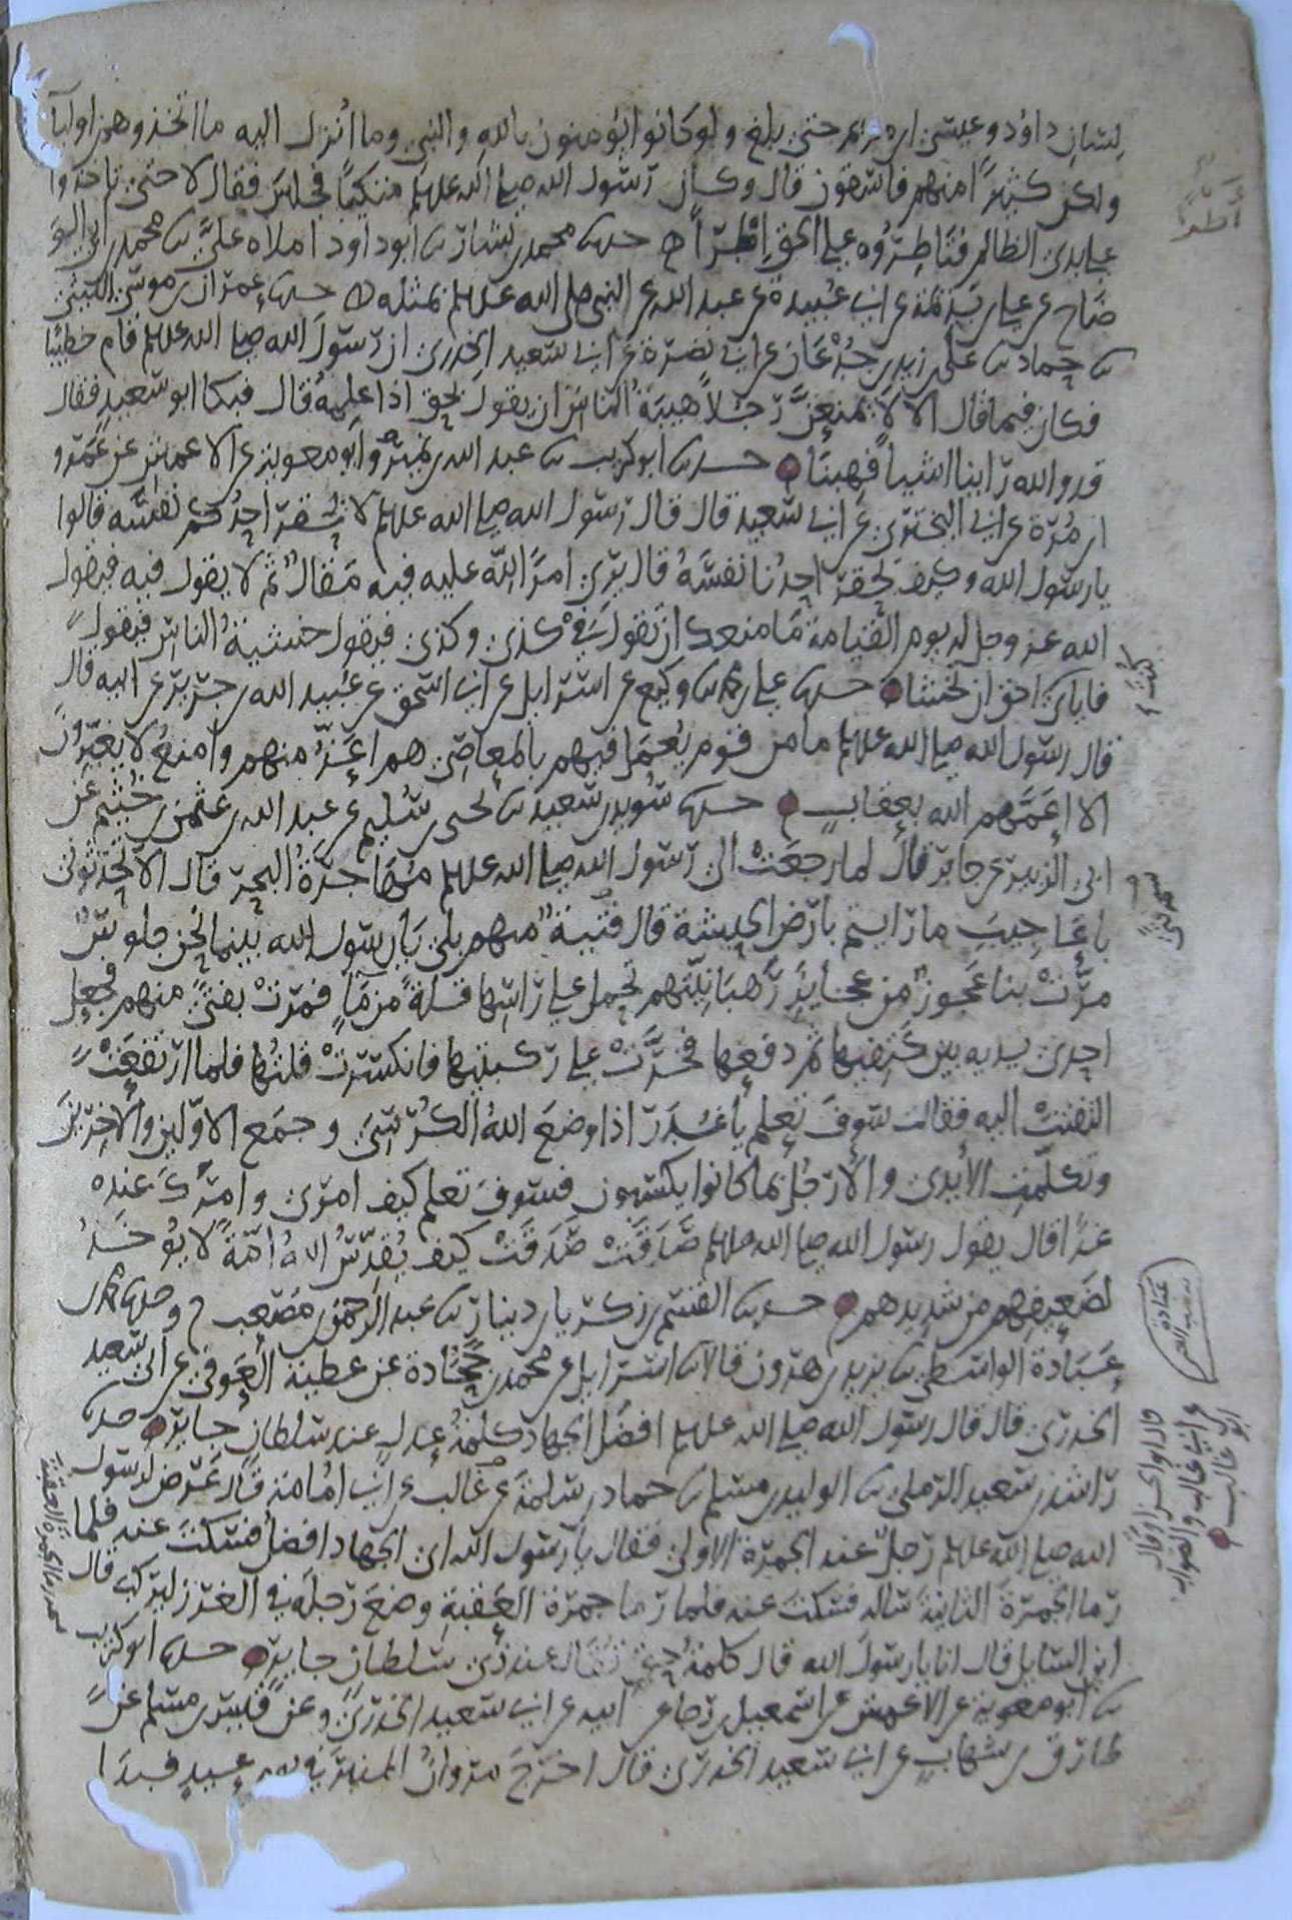 لِسَانِ داوُد وعيسى ابن مريم حتى بلغ ولو كانوا يؤمنون بالله والنبي وما أُنزل اليه ما اتخذوهم اوليا
ولكن كثيرًا منهم فاسقون قال وكان رسول الله صلى الله عليه وسلم متكيًا فجلس فقال لا حتى تاخذوا
على يدي الظالم فتَاطِرُوه على الحق اطْرًا ه حدثنا محمد بن بشار ثنا ابو داود املاه عليَّ ثنا محمد بن ابي الو
ضاح عن علي بن بذيمة عن ابي عُبيدة عن عبد الله عن النبي صلى الله عليه وسلم بمثله ه حدثنا عمران بن موسى الليثي
ثنا حماد ثنا علي بن زيد بن جُدْعان عن ابي نضرة عن ابي سعيد الخدري ان رسول الله صلى الله عليه وسلم قام خطيبًا
فكان فيما قال الا لا يمنعنَّ رجلاً هيبةُ الناس ان يقول بحق اذا علمه قال فبكا ابو سعيد فقال
قد والله راينا اشيا فهبنا حدثنا ابو كريب ثنا عبد الله بن نمير وابو معوية عن الاعمش عن عَمرو
بن مُرّة عن ابي البختري عن ابي سعيد قال قال رسول الله صلى الله عليه وسلم لا يحقر احدكم نفسه قالوا
يا رسول الله وكيف يحقر احدنا نفسَهُ قال يرى امرًا لِلّه عليه فيه مَقالٌ ثم لا يقول فيه فيقول
الله عز وجل له يوم القيامة ما منعك ان تقول في كذى وكذى فيقول خشيةُ الناس فيقول
فاياي احق ان تخشا حدثنا علي بن محمد ثنا وكيع عن اسرايل عن ابي اسحق عن عُبيد الله بن جرير عن ابيه قال
قال رسول الله صلى الله عليه وسلم ما من قوم يُعمَل فيهم بالمعاصي هم اعَزُّ منهم وامنعُ لا يغيّرُون
الا اعَمَّهم الله بعقابٍ حدثنا سُويد بن سعيد ثنا يحيى بن سُليم عن عبد الله بن عثمن بن خُثيم عن
ابي الزبير عن جابر قال لما رجعَتْ الى رسول الله صلى الله عليه وسلم مُهَاجرَةُ البحر قال الا تُحَدّثوني
باعَاجيبَ ما رايتم بارض الحبشة قال فتيةٌ منهم بلى يا رسول الله بينما نحن جلوسٌ
مرَّتْ بنا عَجوزٌ من عجايزِ رَهبَانيتهم تحمل على راسها قلة من مَاٍ فمرّتْ بفتىً منهم فجعل
احدى يديه بين كَتِفيها ثم دفعها فخرَّتْ على ركبتيها فانكسرَتْ قلتُها فلما ارتفعَتْ
التفتتْ اليه فقالت سَوفَ تعلم يا غُدَر اذا وضعَ اللهُ الكُرْسيَّ وجمَع الاوّلين والاخِرين
وتكلّمتِ الأيدي والارجُل بما كانوا يكسبون فسوفَ تعلم كيف امري وامرُكَ عنده
غدًا قال يقول رسول الله صلى الله عليه وسلم صَدَقَتْ صَدَقَتْ كيف يُقدّسُ اللهُ امّةً لا يؤخذُ
لضعيفِهم من شديدهم حدثنا القسم بن زكريا بن دينار ثنا عبد الرحمن بن مصعب ح وحدثنا محمد بن
عَبَادة الواسطي ثنا يزيد بن هرون قالا ثنا اسرايل عن محمد بن جُحَادة عن عطية العَوفي عن ابي سعيد
الخدري قال قال رسول الله صلى الله عليه وسلم افضَل الجهاد كلمةُ عدلٍ عند سلطانٍ جايرٍ حدثنا
راشد بن سعيد الرملي ثنا الوليد بن مسلم ثنا حماد بن سلمة عن غالب عن ابي امُامة قال عَرَض لرسول
الله صلى الله عليه وسلم رجلٌ عند الجمرة الاولى فقال يا رسول الله اي الجهاد افضلُ فسكتَ عنه فلما
رما الجمرةَ الثانيةَ ساله فسكتَ عنه فلما رما جمرة العقبةِ وضعَ رجلَه في الغرز ليركب قال
اين السايل قال انا يا رسولَ الله قال كلمةُ حقٍ تقال عند ذي سلطان جايرٍ حدثنا ابو كريب
ثنا ابو معوية عن الاعمش عن اسمعيل بن رجا عن ابيه عن ابي سعيد الخدري وعن قيس بن مسلم عن
طارق بن شهاب عن ابي سعيد الخدري قال اخرَجَ مروانُ المنبرَ في يوم عيدٍ فبدا